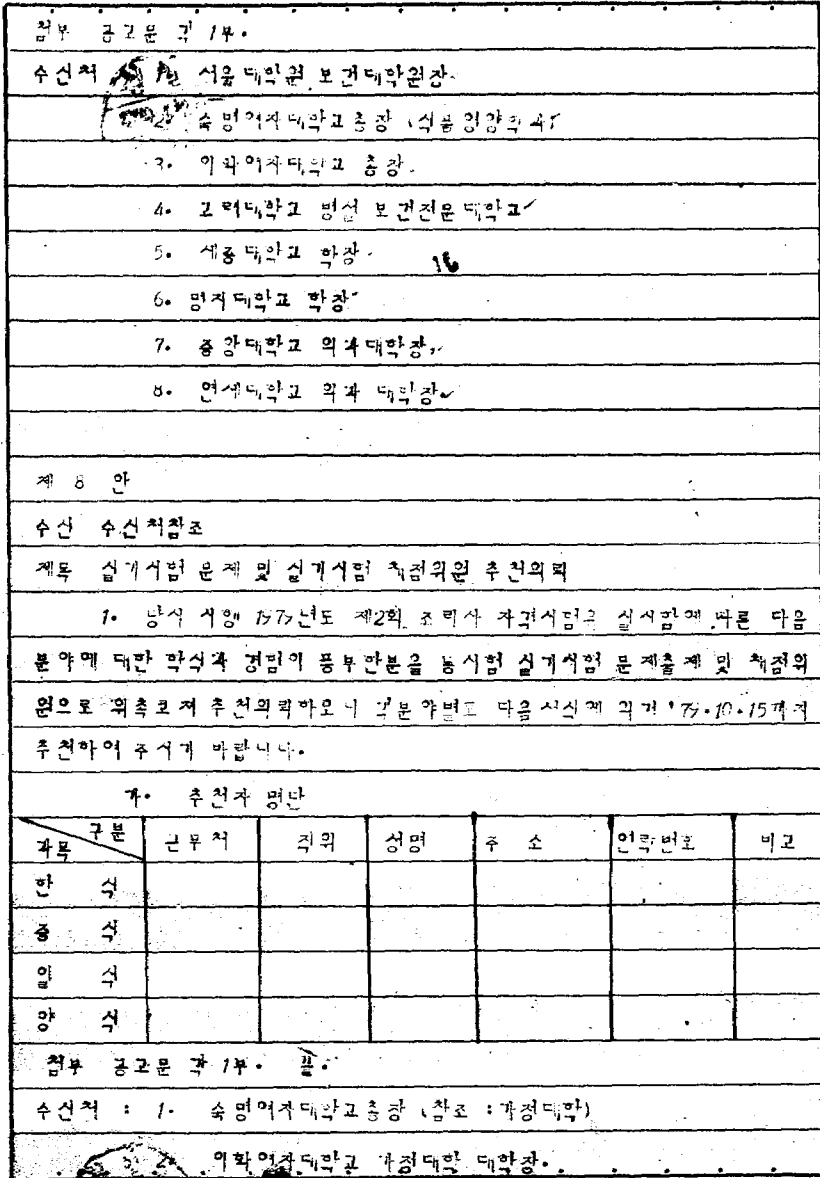 첨부 공고문 각 1부.
수신처 서울대학원 보건대학원장.
2. 숙명여자대학교총장 (식품영양학과)
3. 이화여자대학교 총장.
4. 고려대학교 병설 보건전문대학교
5. 세종대학교 학장.
16
6. 명지대학교 학장
7. 중앙대학교 의과대학장.
8. 연세대학교 의과 대학장.
제 8 안
수신 수신처참조
제목 실기시험 문제 및 실기시험 채점위원 추천의뢰
1. 당식 시행 1979년도 제2회 조리사 자격시험 실시함에 따른 다음
분야에 대한 학식과 경험이 풍부한분을 동시험 실기시험 문제출제 및 채점위
원으로 위촉코저 추천의뢰하오니 각분야별로 다음서식에 의거 '79.10.15까지
추천하여 주시기 바랍니다.
가. 추천자 명단
과목 구분 근무처 직위 성명 주 소 연락번호 비고
한 식
중 식
일 식
양 식
첨부 공고문 각 1부. 끝.
수신처 : 1. 숙명여자대학교총장 (참조 : 가정대학)
2. 이화여자대학교 가정대학 대학장.